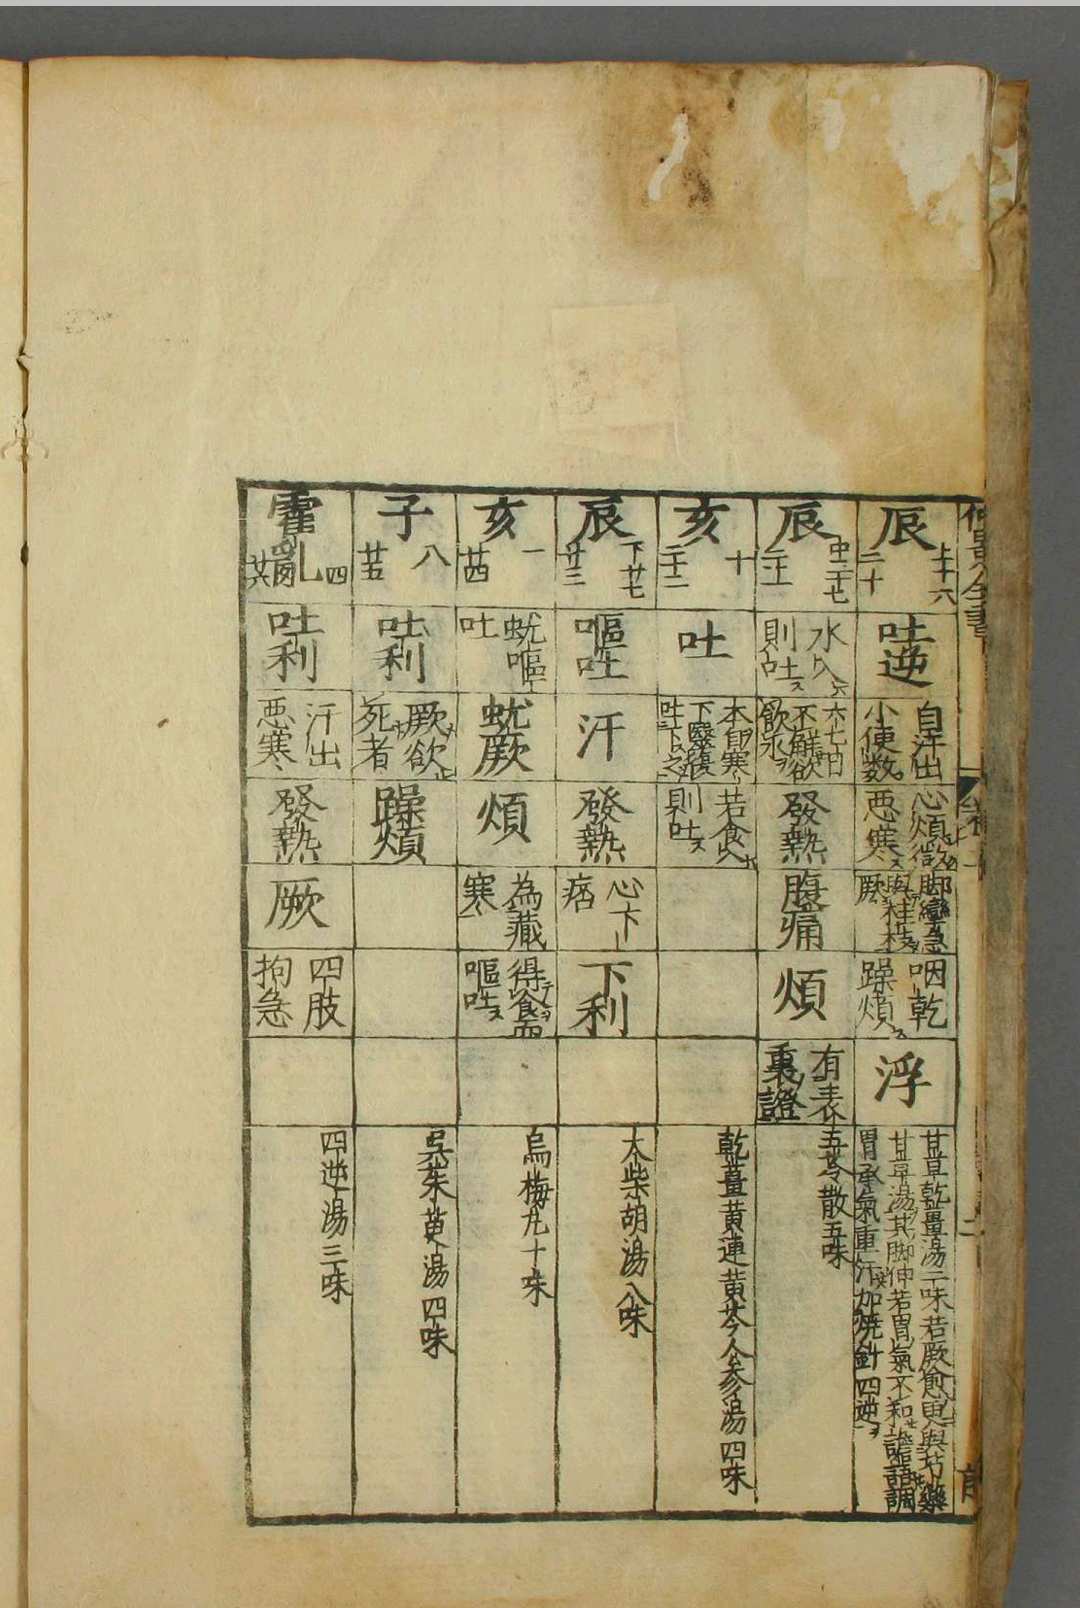 仲景全書
辰
上十六
二十
吐逆
自汗出
小便数
心煩微
悪寒
脚攣急
與桂枝
厥
咽乾
躁煩
浮
甘草乾薑湯二味若厥愈更與芍藥
甘草湯其脚伸若胃氣不和譫語調
胃承氣重汗加燒針四逆
辰
中二十七
二十一
水入
則吐
六七日
不解欲
飲水
發熱
腹痛
煩
有表
裏證
五苓散五味
亥
十
二十二
吐
本自寒
下醫復
吐下之
若食入
則吐
乾薑黃連黃芩人参湯四味
辰
下廿七
廿三
嘔吐
汗
發熱
心下
痞
下利
大柴胡湯八味
亥
一
廿四
蚘嘔
吐
蚘厥
煩
為藏
寒
得食而
嘔吐
烏梅丸十味
子
八
廿五
吐利
厥欲
死者
躁煩
吳茱萸湯四味
霍亂
四
廿六
吐利
汗出
悪寒
發熱
厥
四肢
拘急
四逆湯三味